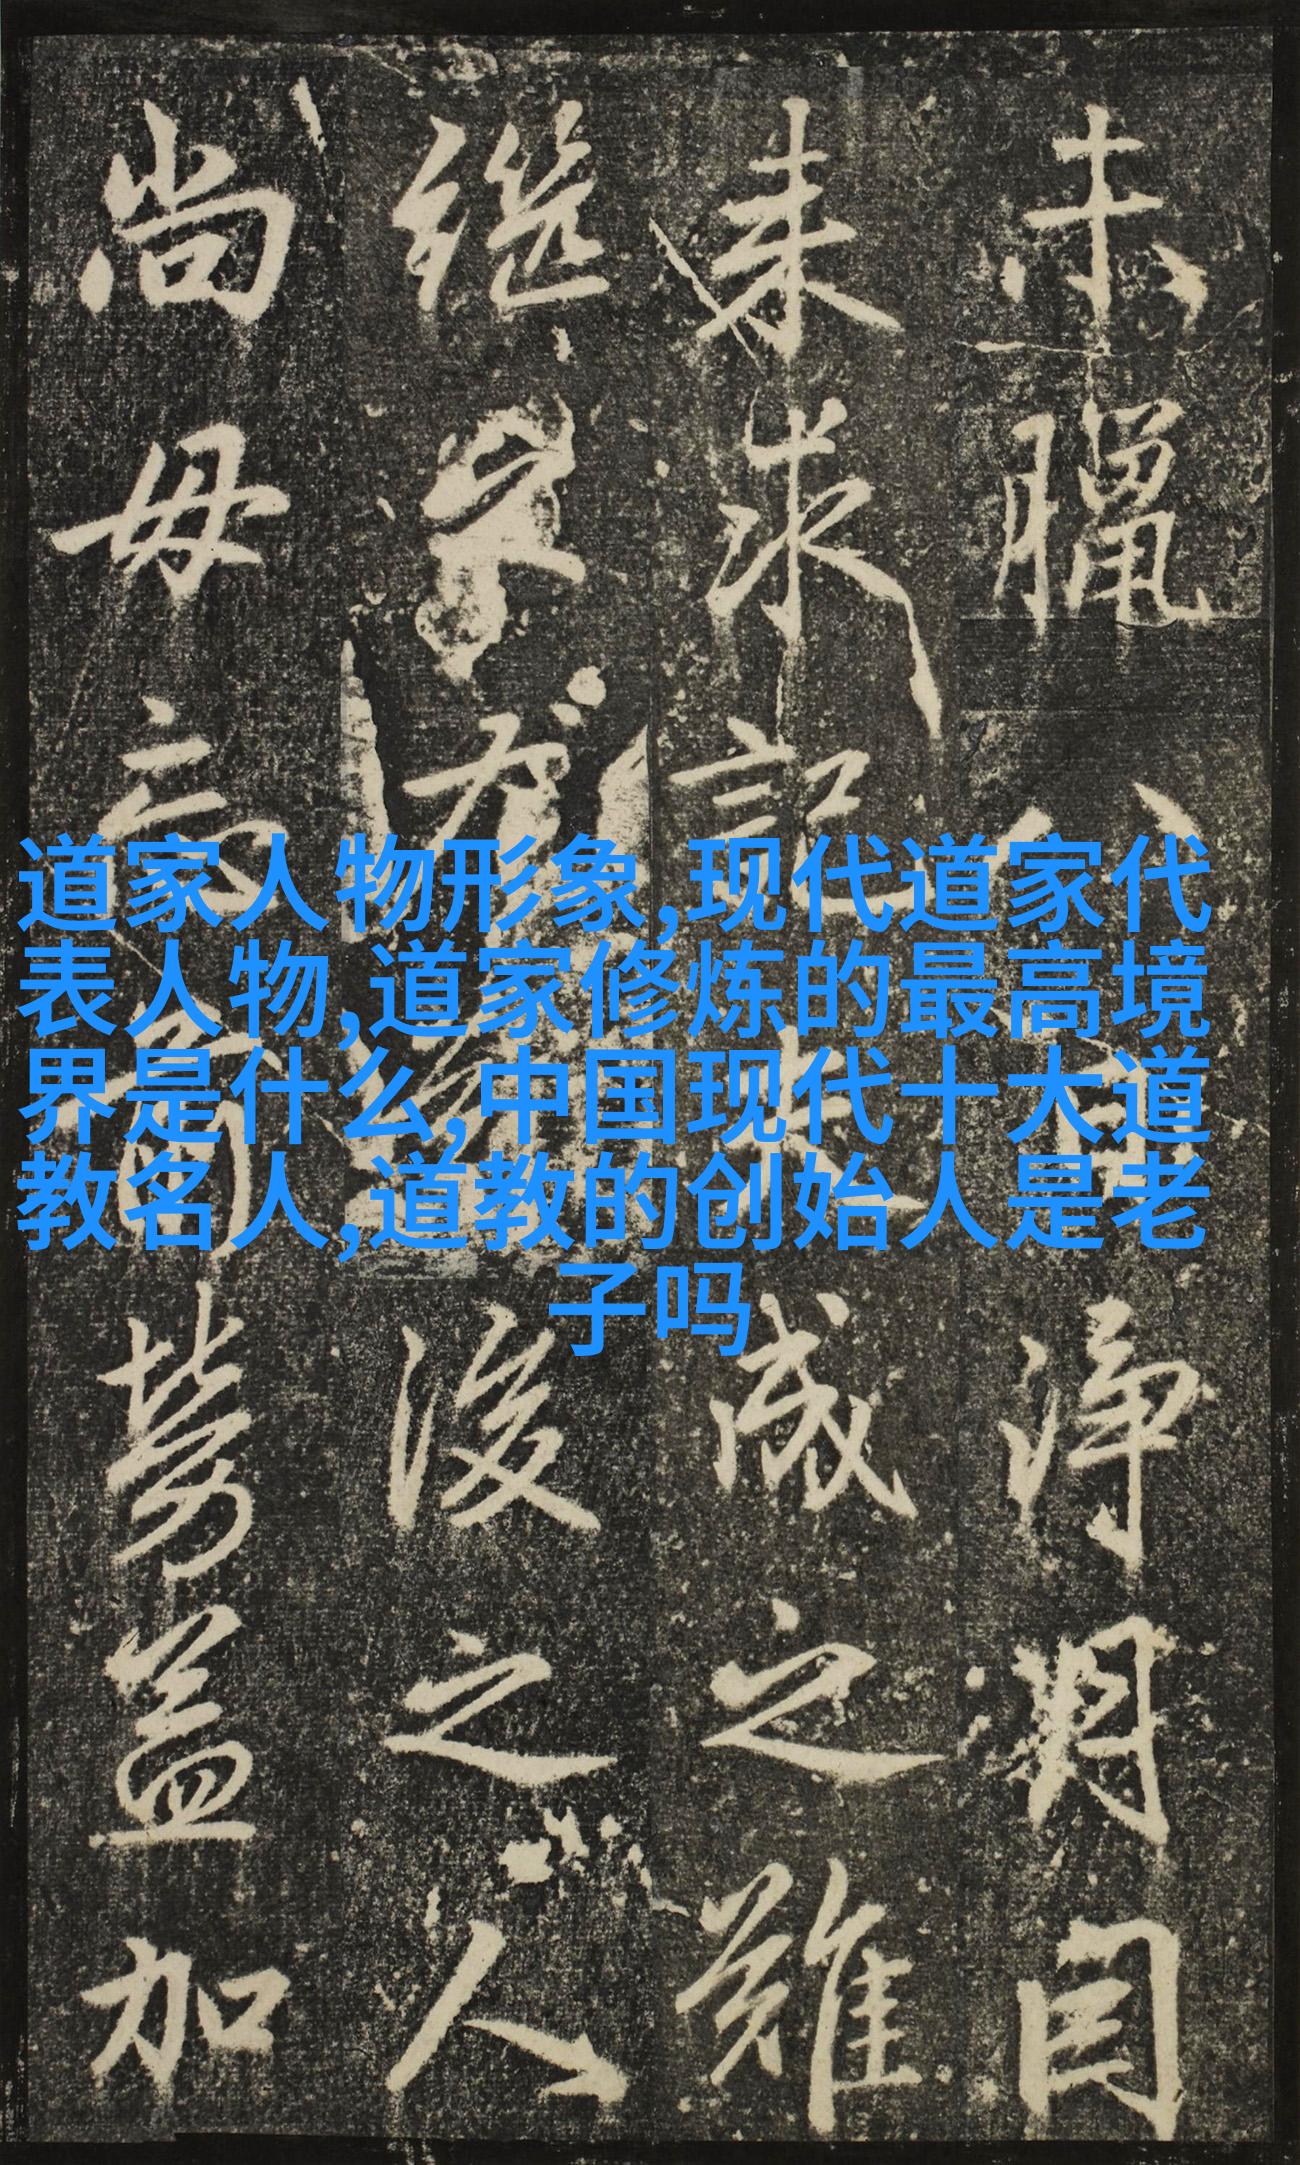 道家人物形象,现代道家代
表人物,道家修炼的最高境
界是什么,中国现代十大道
教名人,道教的创始人是老
子吗
未臘八淨目
来求記成之雖
継後之人
尚毋忘勞益加